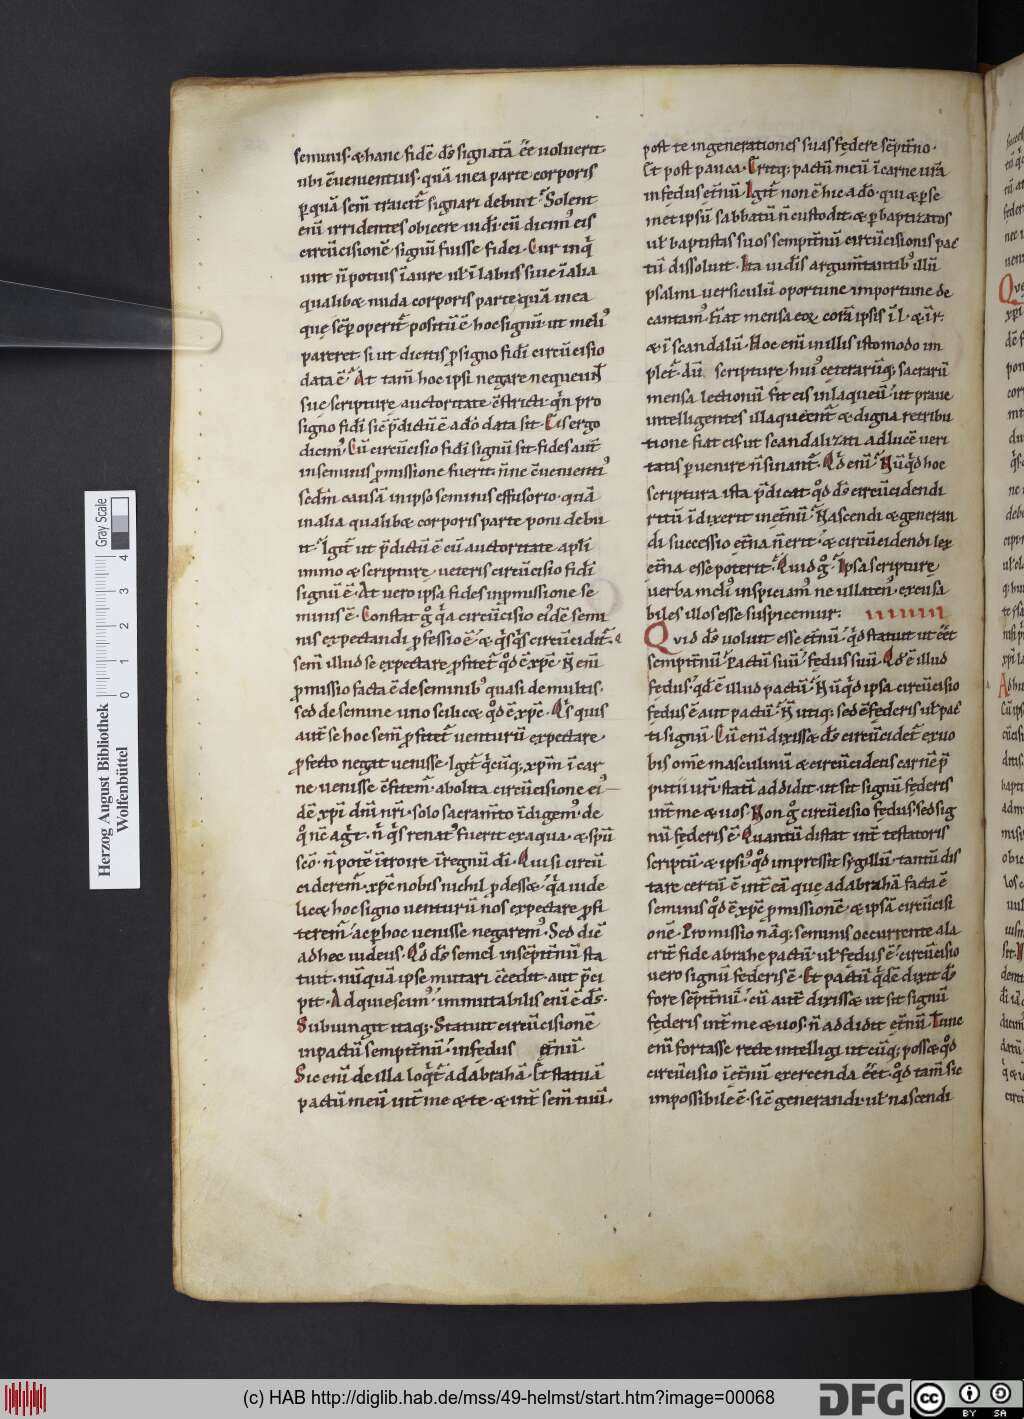 seminis· & hanc fidē d̄s signatā ēē uoluerit·
ubi ēuenientius· quā in ea parte corporis
ꝑ quā sem̄ traicit᷑ signari debuit· Solent
enī irridentes obicere iudi· cū dicim᷒ eis
circūcisionē signū fuisse fidei· Cur inq̄
unt n̄ potius ī aure ul̄ ī labiis siue ī alia
qualib& nuda corporis parte quā in ea
quę sēꝑ operit᷑ positū ē hoc signū· ut meli᷒
pareret· si ut dicitis ꝓ signo fidi circūcisio
data ē· At tam̄ hoc ipsi negare nequeunt
suę scripturę auctoritate c̄stricti· qn̄ pro
signo fidi sic p̄dictū ē a dō data sit· Eis ergo
dicim᷒· Cū circūcisio fidi signū sit· fides aut̄
in seminis ꝓmissione fuerit· n̄ne c̄uenienti᷒
scd̄m causā in ipso seminis effusorio· quā
in alia qualib& corporis parte poni debu
it· Igit᷑ ut p̄dictū ē cū auctoritate apl̄i
immo & scripturę ueteris circūcisio fidi
signū ē· At uero ipsa fides in ꝓmissione se
minis ē· Constat g̊ q̄a circūcisio ei᷒dē semi
nis expectandi ꝓfessio ē· & q̄sq̄s circūcidit᷑·
sem̄ illud se expectare ꝓfitet᷑ qđ ē xp̄c· N̄ enī
ꝓmissio facta ē de seminib᷒ quasi de multis·
sed de semine uno scilic& qđ ē xp̄c· Q̄s quis
aut̄ se hoc sem̄ ꝓfitet᷑ uenturū expectare·
ꝓfecto negat uenisse· Igit᷑ q̄cūq;· xp̄m ī car
ne uenisse c̄fitem᷑· abolita circūcisione ei᷒
dē xp̄i dn̄i nr̄i· solo sacram̄to īdigem᷒ de
q̊ nc̄ agit᷑· n̄ q̄s renat᷒ fuerit ex aqua· & sp̄u
scō· n̄ potē ītroire ī regnū dī· Qui si circū
cideremᷣ· xp̄c nobis nichil ꝓdess&· q̄a uide
lic& hoc signo uenturū nos expectare ꝓfi
teremᷣ· ac ꝑ hoc uenisse negarem᷒· Sed diē
adhęc iudeus· Qđ d̄s semel in sēpit̄nū sta
tuit· nūquā ipse mutari c̄cedit· aut p̄ci
pit· Adquiescim᷒· immutabilis enī ē d̄s·
Subiungit itaq;· Statuit circūcisionē
in pactū sempit̄nū· in fędus et̄nū·
Sic enī de illa loq̄t᷑ ad abrahā· Et statuā
pactū meū int̄ me & te· & int̄ sem̄ tuū·
post te in generationes suas fędere sēpit̄no·
Et post pauca· Eritq; pactū meū ī carne ur̄a
in fędus et̄nū· Igit᷑ non ē hic a dō· qui & ꝑ se
met ipsū sabbatū n̄ custodit· & ꝑ baptizatos
ul̄ baptistas suos sempit̄nū circūcisionis pac
tū dissoluit· Ita uidi᷑s argum̄tantib᷒ illū
psalmi uersiculū oportune importune de
cantam᷒· Fiat mensa eoꝝ corā ipsis ī l· & ī r·
& ī scandalū· Hoc enī in illis istomodo im
plet᷑· dū scripturę hui᷒ ceterarūq; sacrarū
mensa lectionū fit eis in laqueū· ut praue
intelligentes illaqueent᷑ & digna retribu
tione fiat eis ut scandalizati ad lucē ueri
tatis ꝑuenire n̄ sinant᷑· Qđ enī· Nūqđ hoc
scriptura ista p̄dicat· qđ d̄s circūcidendi
ritū īdixerit in et̄nū· Nascendi & generan
di successio et̄na n̄ erit· & circūcidendi lex
et̄na esse poterit· Quid g̊· Ipsa scripturę
uerba meli᷒ inspiciam᷒ ne ullaten᷒ excusa
biles illos esse suspicemur:
Quid d̄s uoluit esse et̄nū· qđ statuit ut eēt
sempit̄nū· Pactū suū· fędus suū· Qđ ē illud
fędus· qđ ē illud pactū· Nūqđ ipsa circūcisio
fędus ē aut pactū· N̄ utiq; sed ē fęderis ul̄ pac
ti signū· Cū enī dixiss& d̄s circūcidet᷑ ex uo
bis om̄e masculinū & circūcidetis carnē p̄
putii ur̄i· statī addidit· ut sit signū fęderis
int̄ me & uos· Non g̊ circūcisio fędus· sed sig
nū fęderis ē· Quantū distat int̄ testatoris
scriptū & ipsi᷒ qđ impressit sygillū· tantū dis
tare certū ē int̄ eā quę ad abrahā facta ē
seminis qđ ē xp̄c ꝓmissionē· & ipsā circūcisi
onē· Promissio nāq; seminis occurrente ala
crit̄ fide abrahę pactū ul̄ fędus ē· circūcisio
uero signū fęderis ē· Et pactū q̄dē dixit d̄s
fore sēpit̄nū· cū aut̄ dixiss& ut sit signū
fęderis int̄ me & uos· n̄ addidit et̄nū· Tunc
enī fortasse recte intelligi utcūq; poss& qđ
circūcisio ī et̄nū exercenda ēēt· qđ tam̄ sic
impossibile ē· sic̄ generandi· ul̄ nascendi
Herzog August Bibliothek
Wolfenbüttel
Gray Scale
0 1 2 3 4
(c) HAB http://diglib.hab.de/mss/49-helmst/start.htm?image=00068
DFG
cc BY SA